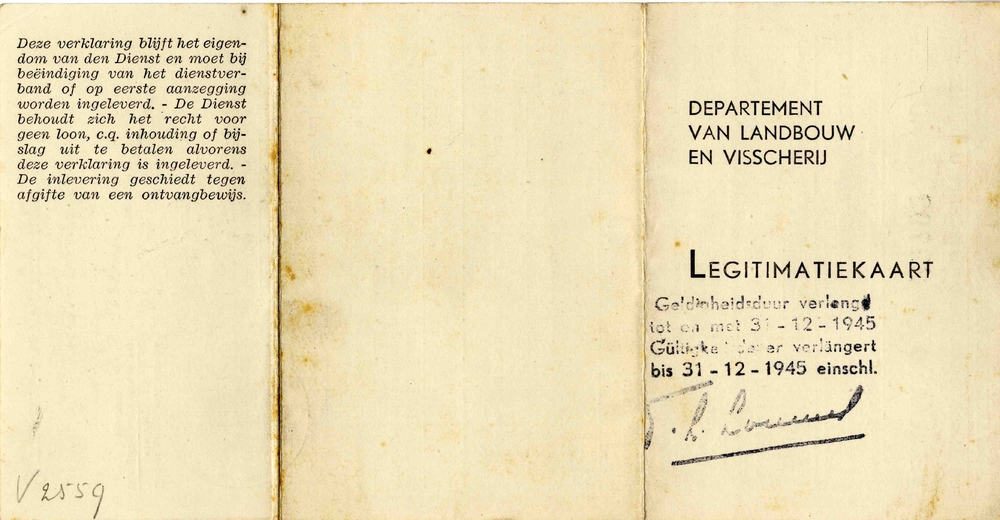 Deze verklaring blijft het eigen-
dom van den Dienst en moet bij
beëindiging van het dienstver-
band of op eerste aanzegging
worden ingeleverd. - De Dienst
behoudt zich het recht voor
geen loon, c.q. inhouding of bij-
slag uit te betalen alvorens
deze verklaring is ingeleverd. -
De inlevering geschiedt tegen
afgifte van een ontvangbewijs.
V 2559
DEPARTEMENT
VAN LANDBOUW
EN VISSCHERIJ
LEGITIMATIEKAART
Geldigheidsduur verlengd
tot en met 31-12-1945
verlängert
bis 31-12-1945 einschl.